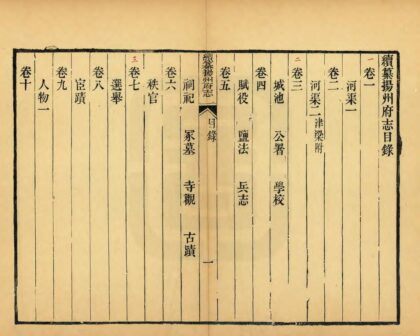 續纂揚州府志目錄
一
卷一
河渠一
卷二
河渠二 津梁附
二
卷三
城池 公署 學校
卷四
賦役 鹽法 兵志
卷五
續纂揚州府志 目錄 一
祠祀 冢墓 寺觀 古蹟
卷六
秩官
三
卷七
選舉
卷八
宦蹟
卷九
人物一
卷十